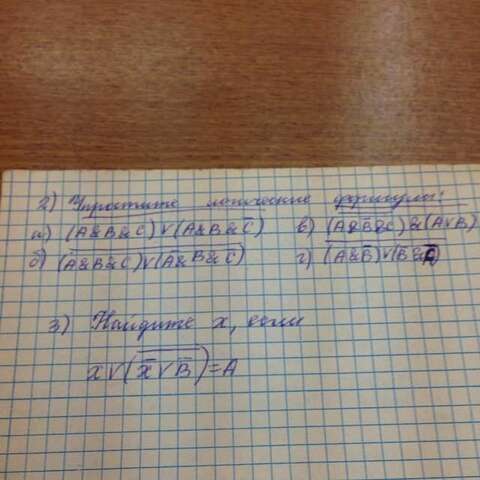 2) Упростите логические формулы:
а) (A&B&C)V(A&B&C̅) в) (A&B̅&C)&(AVB)
б) (A&B&C)V(A&B&C̅) г) (A&B̅)V(B̅&C)
3) Найдите x, если
xV(x̅VB̅)=A